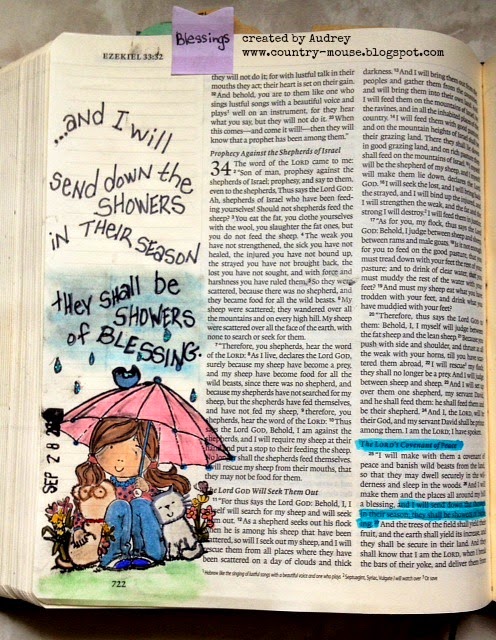 created by Audrey
www.country-mouse.blogspot.com
Blessings
EZEKIEL 33:32
...and I will
send down the
SHOWERS
in THEIR SEASON
they shall be
SHOWERS
of BLESSING.
SEP 28
722
they will not do it; for with lustful talk in their
mouths they act; their heart is set on their gain.
32 And behold, you are to them like one who
sings lustful songs with a beautiful voice and
plays well on an instrument, for they hear
what you say, but they will not do it. 33 When
this comes—and come it will!—then they will
know that a prophet has been among them."
Prophecy Against the Shepherds of Israel
34 The word of the LORD came to me:
2 "Son of man, prophesy against the
shepherds of Israel; prophesy, and say to them,
even to the shepherds, Thus says the Lord GOD:
Ah, shepherds of Israel who have been feed-
ing yourselves! Should not shepherds feed the
sheep? 3 You eat the fat, you clothe yourselves
with the wool, you slaughter the fat ones, but
you do not feed the sheep. 4 The weak you
have not strengthened, the sick you have not
healed, the injured you have not bound up,
the strayed you have not brought back, the
lost you have not sought, and with force and
harshness you have ruled them. 5 So they were
scattered, because there was no shepherd, and
they became food for all the wild beasts. 6 My
sheep were scattered; they wandered over all
the mountains and on every high hill. My sheep
were scattered over all the face of the earth, with
none to search or seek for them.
7 "Therefore, you shepherds, hear the word
of the LORD: 8 As I live, declares the Lord GOD,
surely because my sheep have become a prey,
and my sheep have become food for all the
wild beasts, since there was no shepherd, and
because my shepherds have not searched for my
sheep, but the shepherds have fed themselves,
and have not fed my sheep, 9 therefore, you
shepherds, hear the word of the LORD: 10 Thus
says the Lord GOD, Behold, I am against the
shepherds, and I will require my sheep at their
hand and put a stop to their feeding the sheep.
No shall the shepherds feed themselves.
will rescue my sheep from their mouths, that
they may not be food for them.
The Lord GOD Will Seek Them Out
11 "For thus says the Lord GOD: Behold, I, I
myself will search for my sheep and will seek
them out. 12 As a shepherd seeks out his flock
when he is among his sheep that have been
scattered, so will I seek out my sheep, and I will
rescue them from all places where they have
been scattered on a day of clouds and thick
darkness. 13 And I will bring them out from the
peoples and gather them from the
and will bring them into their own
I will feed them on the mountains of
the ravines, and in all the inhabited
country. 14 I will feed them with good
and on the mountain heights of
their grazing land. There they shall lie
in good grazing land, and on rich pasture
shall feed on the mountains of Israel.
will be the shepherd of my sheep, and I
will make them lie down, declares the
GOD. 16 I will seek the lost, and I will bring
the strayed, and I will bind up the injured,
I will strengthen the weak, and the fat and
strong I will destroy. I will feed them in
17 "As for you, my flock, thus says the
GOD: Behold, I judge between sheep and
between rams and male goats. 18 Is it not
for you to feed on the good pasture, that
must tread down with your feet the rest of your
pasture; and to drink of clear water, that
must muddy the rest of the water with
feet? 19 And must my sheep eat what you
trodden with your feet, and drink what
have muddied with your feet?
20 "Therefore, thus says the Lord GOD
them: Behold, I, I myself will judge between
the fat sheep and the lean sheep. 21 Because you
push with side and shoulder, and thrust at all
the weak with your horns, till you have
tered them abroad, 22 I will rescue my flock;
they shall no longer be a prey. And I will
between sheep and sheep. 23 And I will set
over them one shepherd, my servant David,
and he shall feed them: he shall feed them and
be their shepherd. 24 And I, the LORD, will be
their God, and my servant David shall be prince
among them. I am the LORD; I have spoken.
The LORD's Covenant of Peace
25 "I will make with them a covenant of
peace and banish wild beasts from the land,
so that they may dwell securely in the wil-
derness and sleep in the woods. 26 And I will
make them and the places all around my hill
a blessing, and I will send down the showers
in their season; they shall be showers of bless-
ing. 27 And the trees of the field shall yield their
fruit, and the earth shall yield its increase, and
they shall be secure in their land. And they
shall know that I am the LORD, when I break
the bars of their yoke, and deliver them from
Hebrew like the singing of lustful songs with a beautiful voice and one who plays 2 Septuagint, Syriac, Vulgate I will watch over 3 Or save